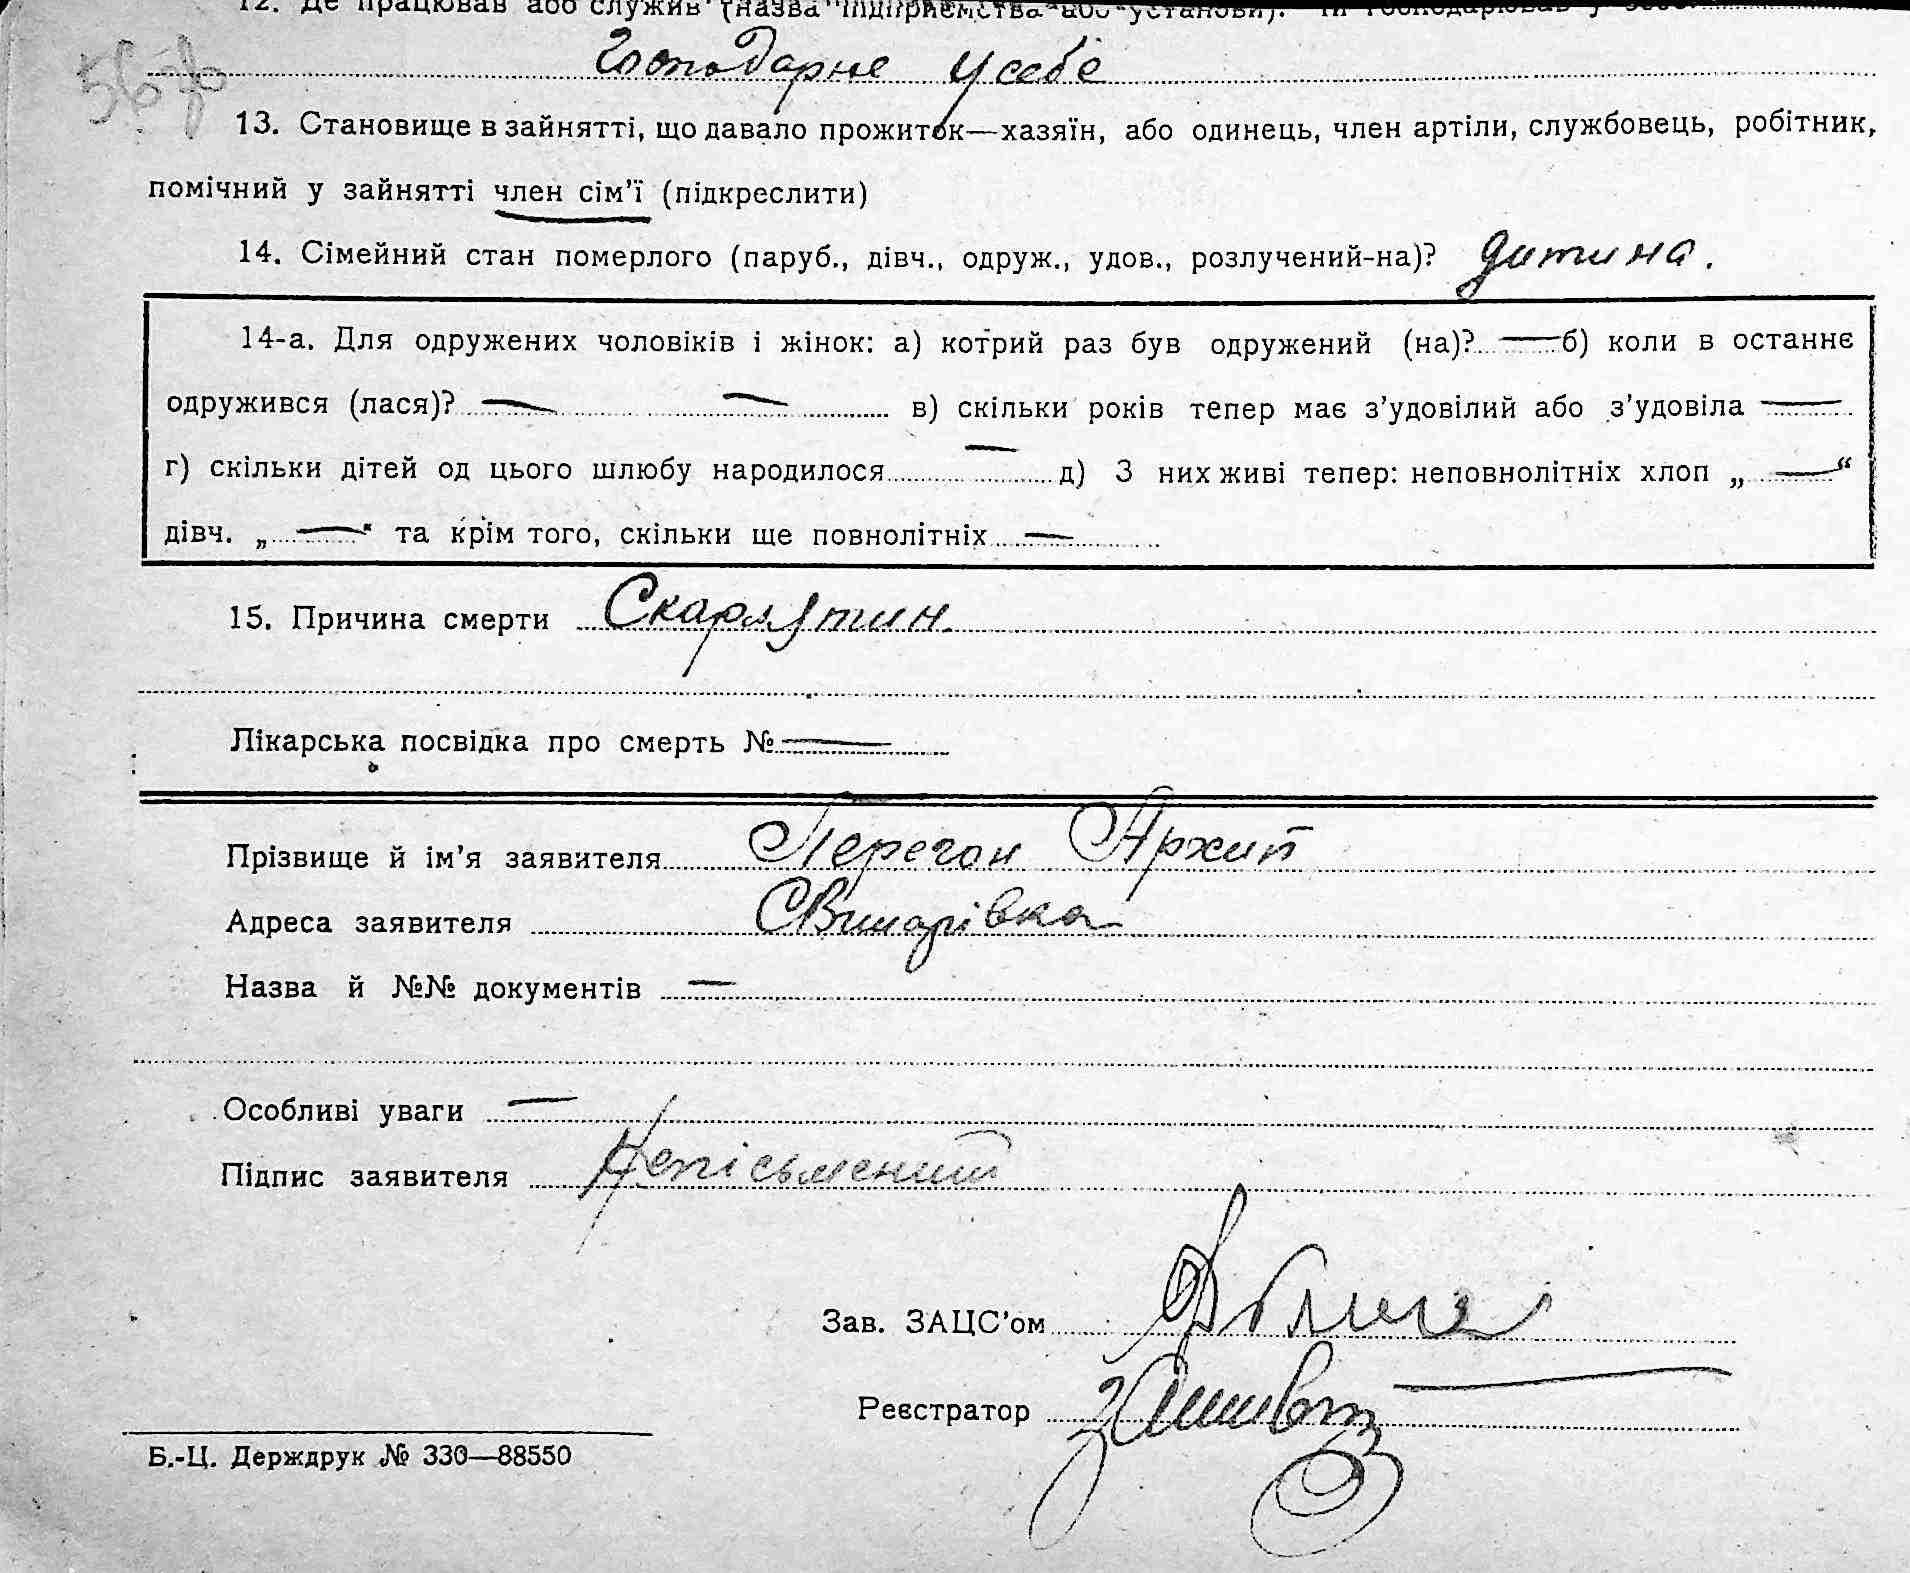 12. Де працював або служив (назва підприємства або установи). Чи господарював у себе
Господарне у себе
13. Становище в зайнятті, що давало прожиток—хазяїн, або одинець, член артіли, службовець, робітник,
помічний у зайнятті член сім'ї (підкреслити)
14. Сімейний стан померлого (паруб., дівч., одруж., удов., розлучений-на)? дитина.
14-а. Для одружених чоловіків і жінок: а) котрий раз був одружений (на)? — б) коли в останнє
одружився (лася)? — — в) скільки років тепер має з'удовілий або з'удовіла —
г) скільки дітей од цього шлюбу народилося — д) З них живі тепер: неповнолітніх хлоп „ — “
дівч. „ — “ та крім того, скільки ще повнолітніх —
15. Причина смерти Скарлятин
Лікарська посвідка про смерть № —
Прізвище й ім'я заявителя Перегон Архип
Адреса заявителя Свинарівка
Назва й №№ документів —
Особливі уваги —
Підпис заявителя Непісьмений
Зав. ЗАЦС'ом
Реєстратор
Б.-Ц. Держдрук № 330—88550